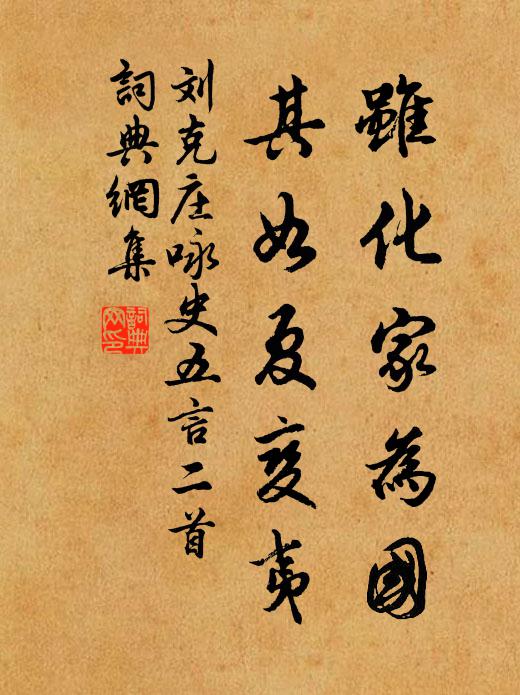 雖化家為國
其如夏变夷
刘克庄咏史五言二首
詞典網集
詞典
网印